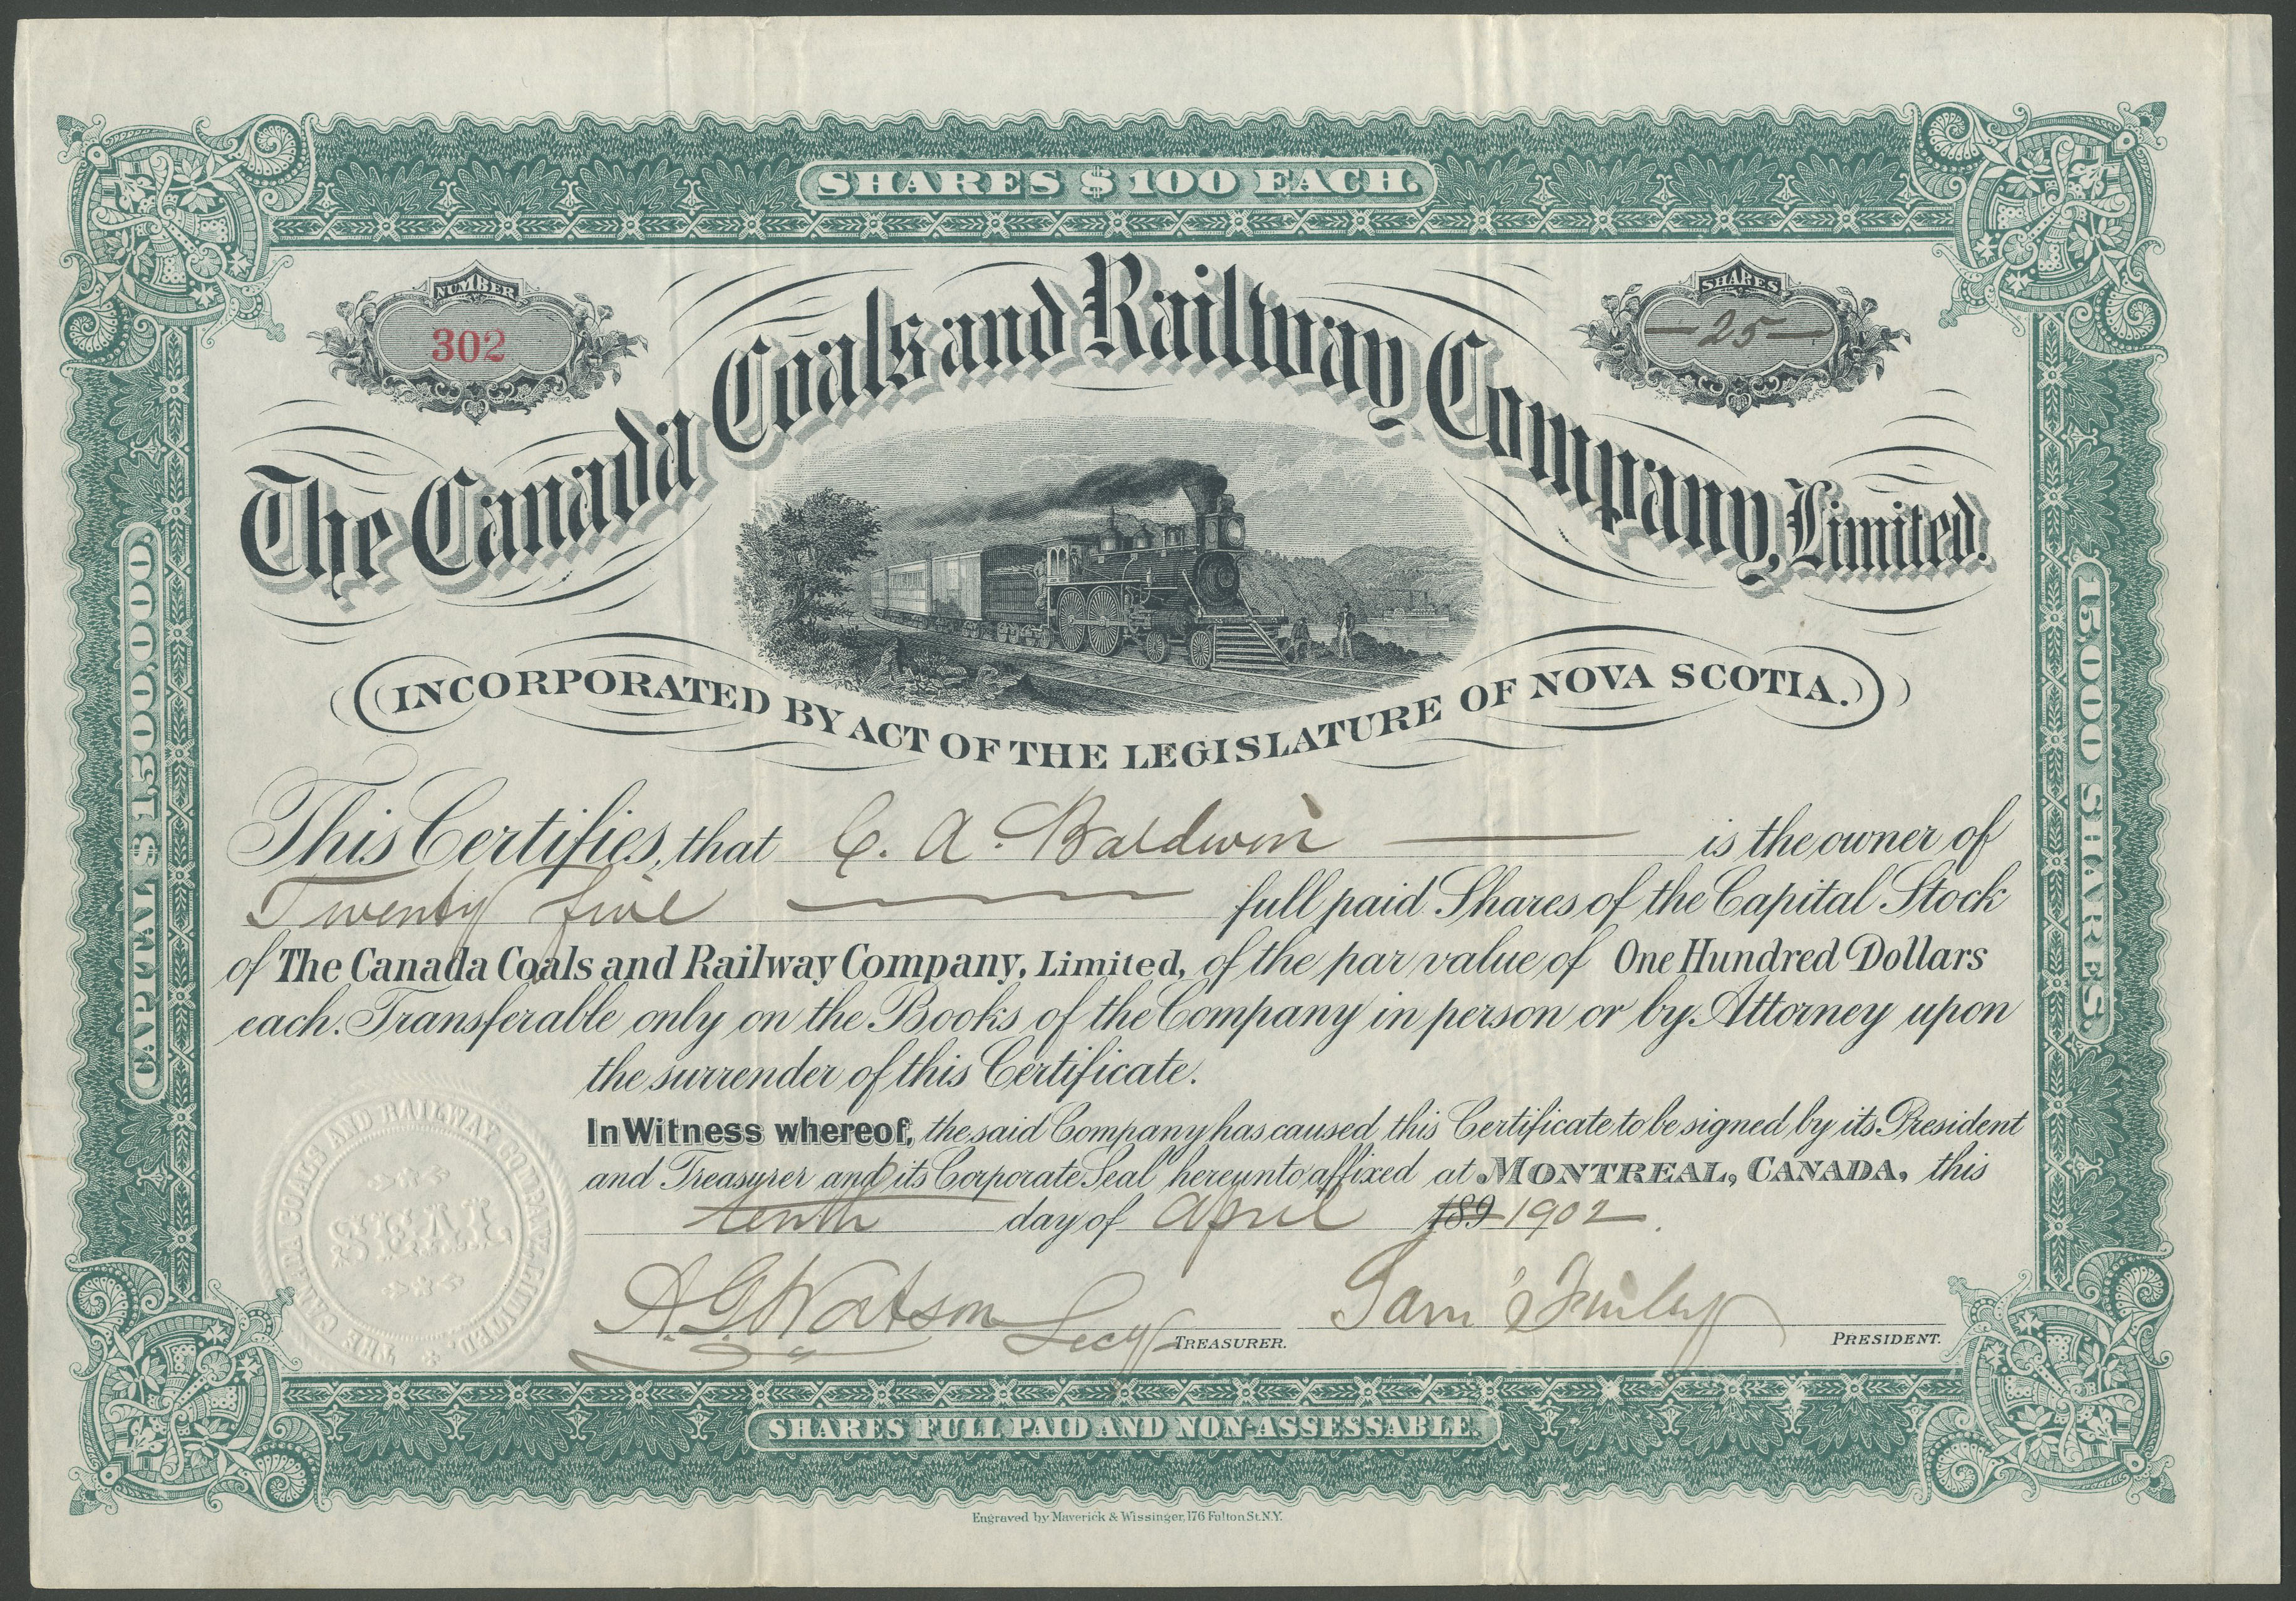 SHARES $100 EACH.
NUMBER
302
SHARES
25
The Canada Coals and Railway Company, Limited.
(INCORPORATED BY ACT OF THE LEGISLATURE OF NOVA SCOTIA.)
CAPITAL $1,500,000.
15,000 SHARES.
This Certifies, that C. A. Baldwin is the owner of
Twenty five full paid Shares of the Capital Stock
of The Canada Coals and Railway Company, Limited, of the par value of One Hundred Dollars
each. Transferable only on the Books of the Company in person or by Attorney upon
the surrender of this Certificate.
In Witness whereof, the said Company has caused this Certificate to be signed by its President
and Treasurer and its Corporate Seal hereunto affixed at MONTREAL, CANADA, this
tenth day of April 189 1902.
THE CANADA COALS AND RAILWAY COMPANY, LIMITED.
SEAL
A. G. Watson Secy TREASURER.
Sam'l Finley PRESIDENT.
SHARES FULL PAID AND NON-ASSESSABLE.
Engraved by Maverick & Wissinger, 176 Fulton St. N.Y.